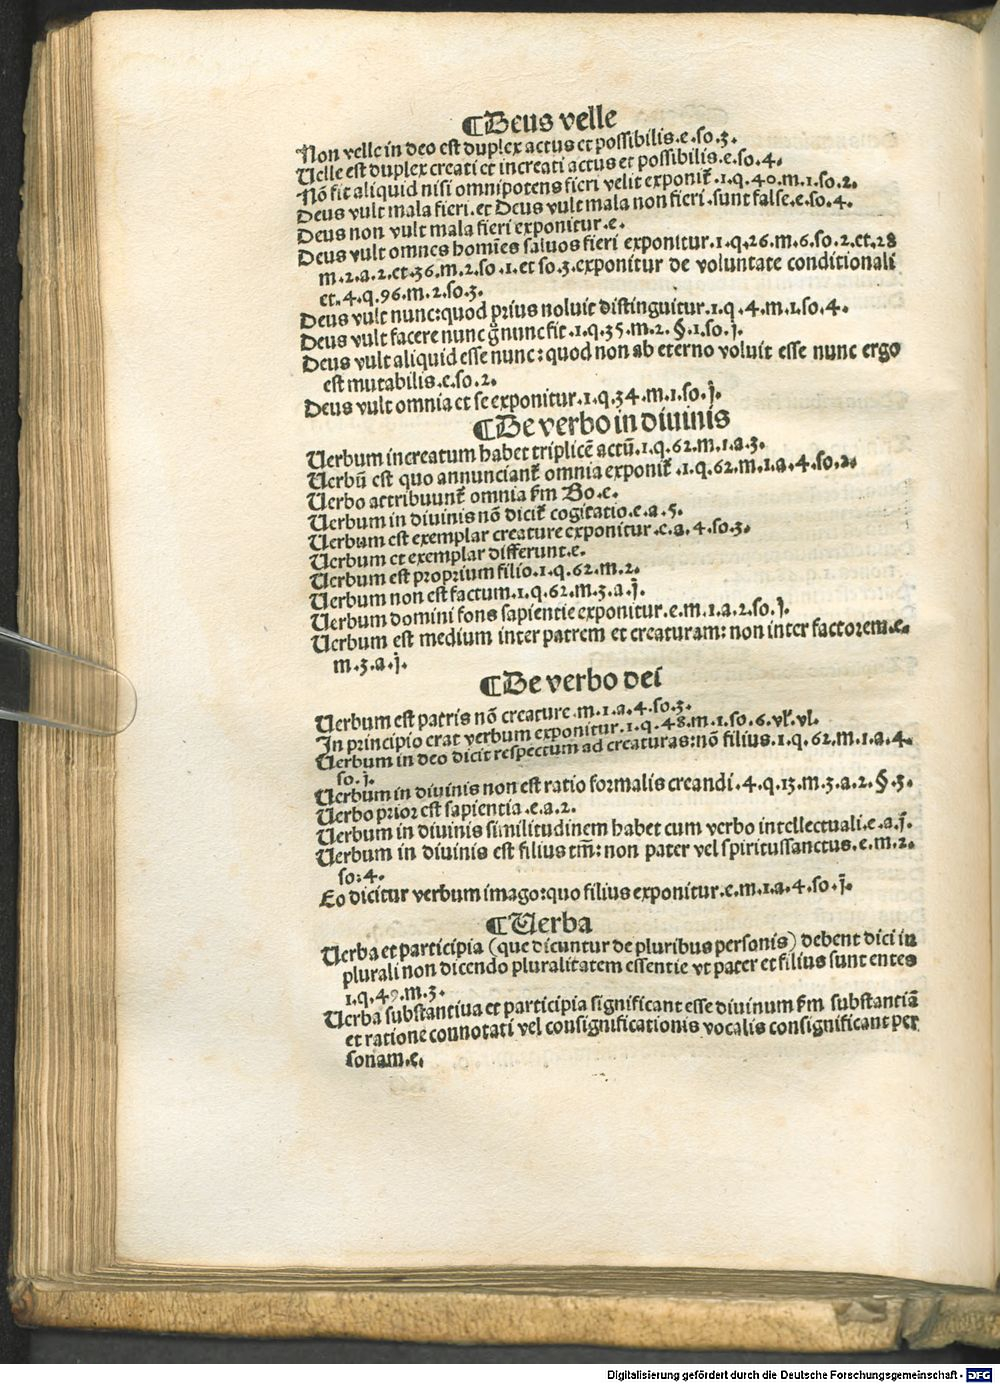 ¶Deus velle
Non velle in deo est duplex actus et possibilis.e.so.3.
Uelle est duplex creati et increati actus et possibilis.e.so.4.
Nō fit aliquid nisi omnipotens fieri velit exponit᷑.1.q.40.m.1.so.2.
Deus vult mala fieri.et Deus vult mala non fieri.sunt false.e.so.4.
Deus non vult mala fieri exponitur.e.
Deus vult omnes homīes saluos fieri exponitur.1.q.26.m.6.so.2.et.28
m.2.a.2.et.36.m.2.so.1.et so.3.exponitur de voluntate conditionali
et.4.q.96.m.2.so.3.
Deus vult nunc:quod prius noluit distinguitur.1.q.4.m.1.so.4.
Deus vult facere nunc g̊ nunc fit.1.q.35.m.2.§.1.so.j.
Deus vult aliquid esse nunc:quod non ab eterno voluit esse nunc ergo
est mutabilis.e.so.2.
Deus vult omnia et se exponitur.1.q.34.m.1.so.j.
¶De verbo in diuinis
Uerbum increatum habet triplicē actū.1.q.62.m.1.a.3.
Uerbū est quo annunciant᷑ omnia exponit᷑.1.q.62.m.1.a.4.so.2.
Uerbo attribuunt᷑ omnia ẜm Bo.e.
Uerbum in diuinis nō dicit᷑ cogitatio.e.a.5.
Uerbum est exemplar creature exponitur.e.a.4.so.3.
Uerbum et exemplar differunt.e.
Uerbum est proprium filio.1.q.62.m.2.
Uerbum non est factum.1.q.62.m.3.a.j.
Uerbum domini fons sapientie exponitur.e.m.1.a.2.so.j.
Uerbum est medium inter patrem et creaturam:non inter factorem.e.
m.3.a.j.
¶De verbo dei
Uerbum est patris nō creature.m.1.a.4.so.3.
In principio erat verbum exponitur.1.q.48.m.1.so.6.vl̛.vl.
Uerbum in deo dicit respectum ad creaturas:nō filius.1.q.62.m.1.a.4.
so.j.
Uerbum in diuinis non est ratio formalis creandi.4.q.13.m.3.a.2.§.3.
Uerbo prior est sapientia.e.a.2.
Uerbum in diuinis similitudinem habet cum verbo intellectuali.e.a.j.
Uerbum in diuinis est filius tm̄:non pater vel spiritussanctus.e.m.2.
so:4.
Eo dicitur verbum imago:quo filius exponitur.e.m.1.a.4.so.j.
¶Uerba
Uerba et participia (que dicuntur de pluribus personis) debent dici in
plurali non dicendo pluralitatem essentie vt pater et filius sunt entes
1.q.49.m.3.
Uerba substantiua et participia significant esse diuinum ẜm substantiā
et ratione connotati vel consignificationis vocalis consignificant per
sonam.e.
Digitalisierung gefördert durch die Deutsche Forschungsgemeinschaft - DFG